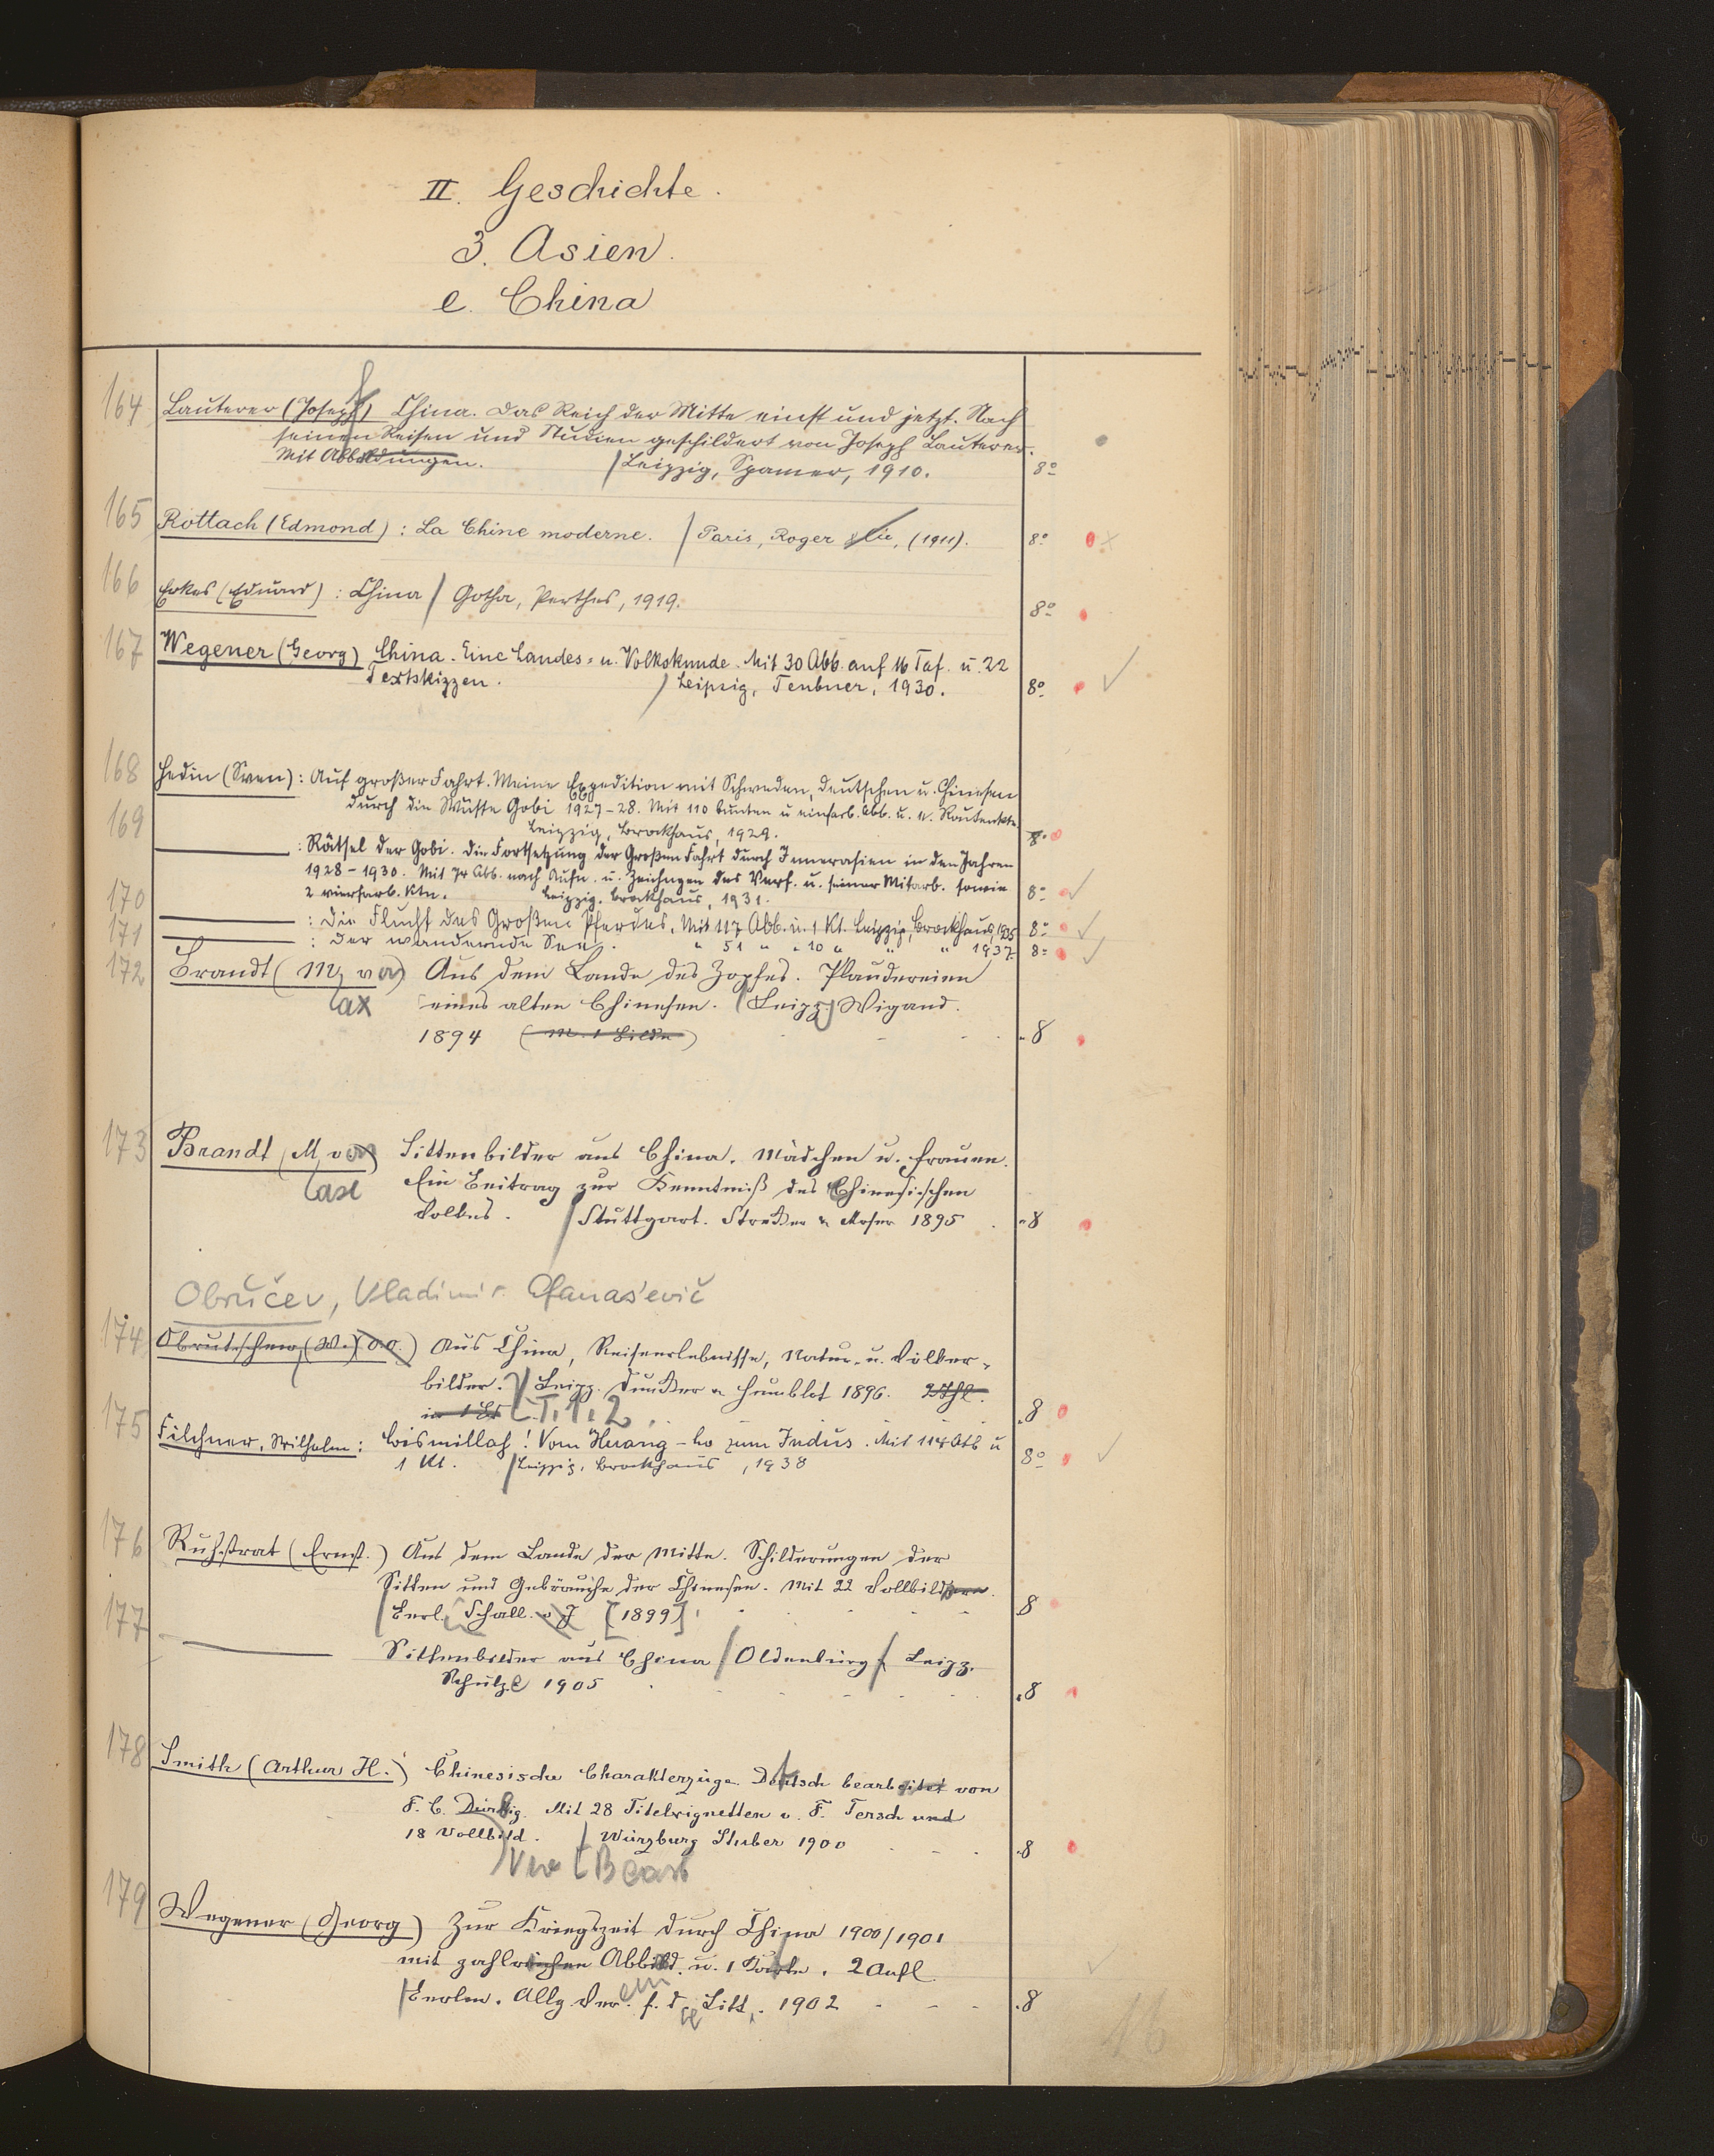 II. Geschichte.
3. Asien.
e. China
164 Lauterer (Joseph) China. Das Reich der Mitte einst und jetzt. Nach
seinen Reisen und Studien geschildert von Joseph Lauterer.
Mit Abbildungen. / Leipzig, Spamer, 1910. 8º
165 Rottach (Edmond): La Chine moderne. / Paris, Roger & Cie, (1911). 8º
166 Erkes (Eduard): China / Gotha, Perthes, 1919. 8º
167 Wegener (Georg) China. Eine Landes- u. Volkskunde. Mit 30 Abb. auf 16 Taf. u. 22
Textskizzen. / Leipzig, Teubner, 1930. 8º
168 Hedin (Sven): Auf großer Fahrt. Meine Expedition mit Schweden, Deutschen u. Chinesen
durch die Wüste Gobi 1927-28. Mit 110 bunten u einfarb. Abb. u. Routenkte
Leipzig, Brockhaus, 1929. 8º
169 : Rätsel der Gobi. Die Fortsetzung der Großen Fahrt durch Innerasien in den Jahren
1928-1930. Mit 74 Abb. nach Aufn. u. Zeichngen des Verf. u. seiner Mitarb. sowie
2 vierfarb. Ktn. Leipzig, Brockhaus, 1931. 8º
170 : Die Flucht des Großen Pferdes. Mit 117 Abb. u. 1 Kt. Leipzig, Brockhaus, 1935 8º
171 : Der wandernde See. " 51 " " 10 " " " 1937. 8º
172 Brandt (M. von) Aus dem Lande des Zopfes. Plaudereien
ax eines alten Chinesen. (Leipz.) Wigand.
1894 (M. 1 Bilde) 8
173 Brandt, M. von Sittenbilder aus China. Mädchen u. Frauen.
Ein Beitrag zur Kenntniß des Chinesischen
Volkes. / Stuttgart. Strecker u Moser 1895 8
Obručev, Vladimir Afanas'evič
174 Obrutschew, (W.) Aus China, Reiseerlebnisse, Natur- u. Völker-
bilder. / Leipz. Duncker u Humblot 1896. 2 Thl.
in 1 Bd [T. 1. 2. 8
175 Filchner, Wilhelm: Bismillah! Vom Huang-ho zum Indus. Mit 114 Abb u
1 Kt. / Leipzig, Brockhaus, 1938 8º
176 Ruhstrat (Ernst.) Aus dem Lande der Mitte. Schilderungen der
Sitten und Gebräuche der Chinesen. Mit 22 Vollbildern.
/ Berl. Schall. o J [1899] 8
177 Sittenbilder aus China / Oldenburg & Leipz.
Schulze 1905 8
178 Smith (Arthur H.) Chinesische Charakterzüge. Deutsch bearbeitet von
F. C. Dürbig. Mit 28 Titelvignetten v. F. Tersch und
18 Vollbild. / Würzburg Stuber 1900 8
179 Wegener (Georg) Zur Kriegszeit durch China 1900/1901
mit zahlreichen Abbild. u. 1 Karte. 2 Aufl.
/ Berlin. Allg. Verein f. d. Litt. 1902 8
16